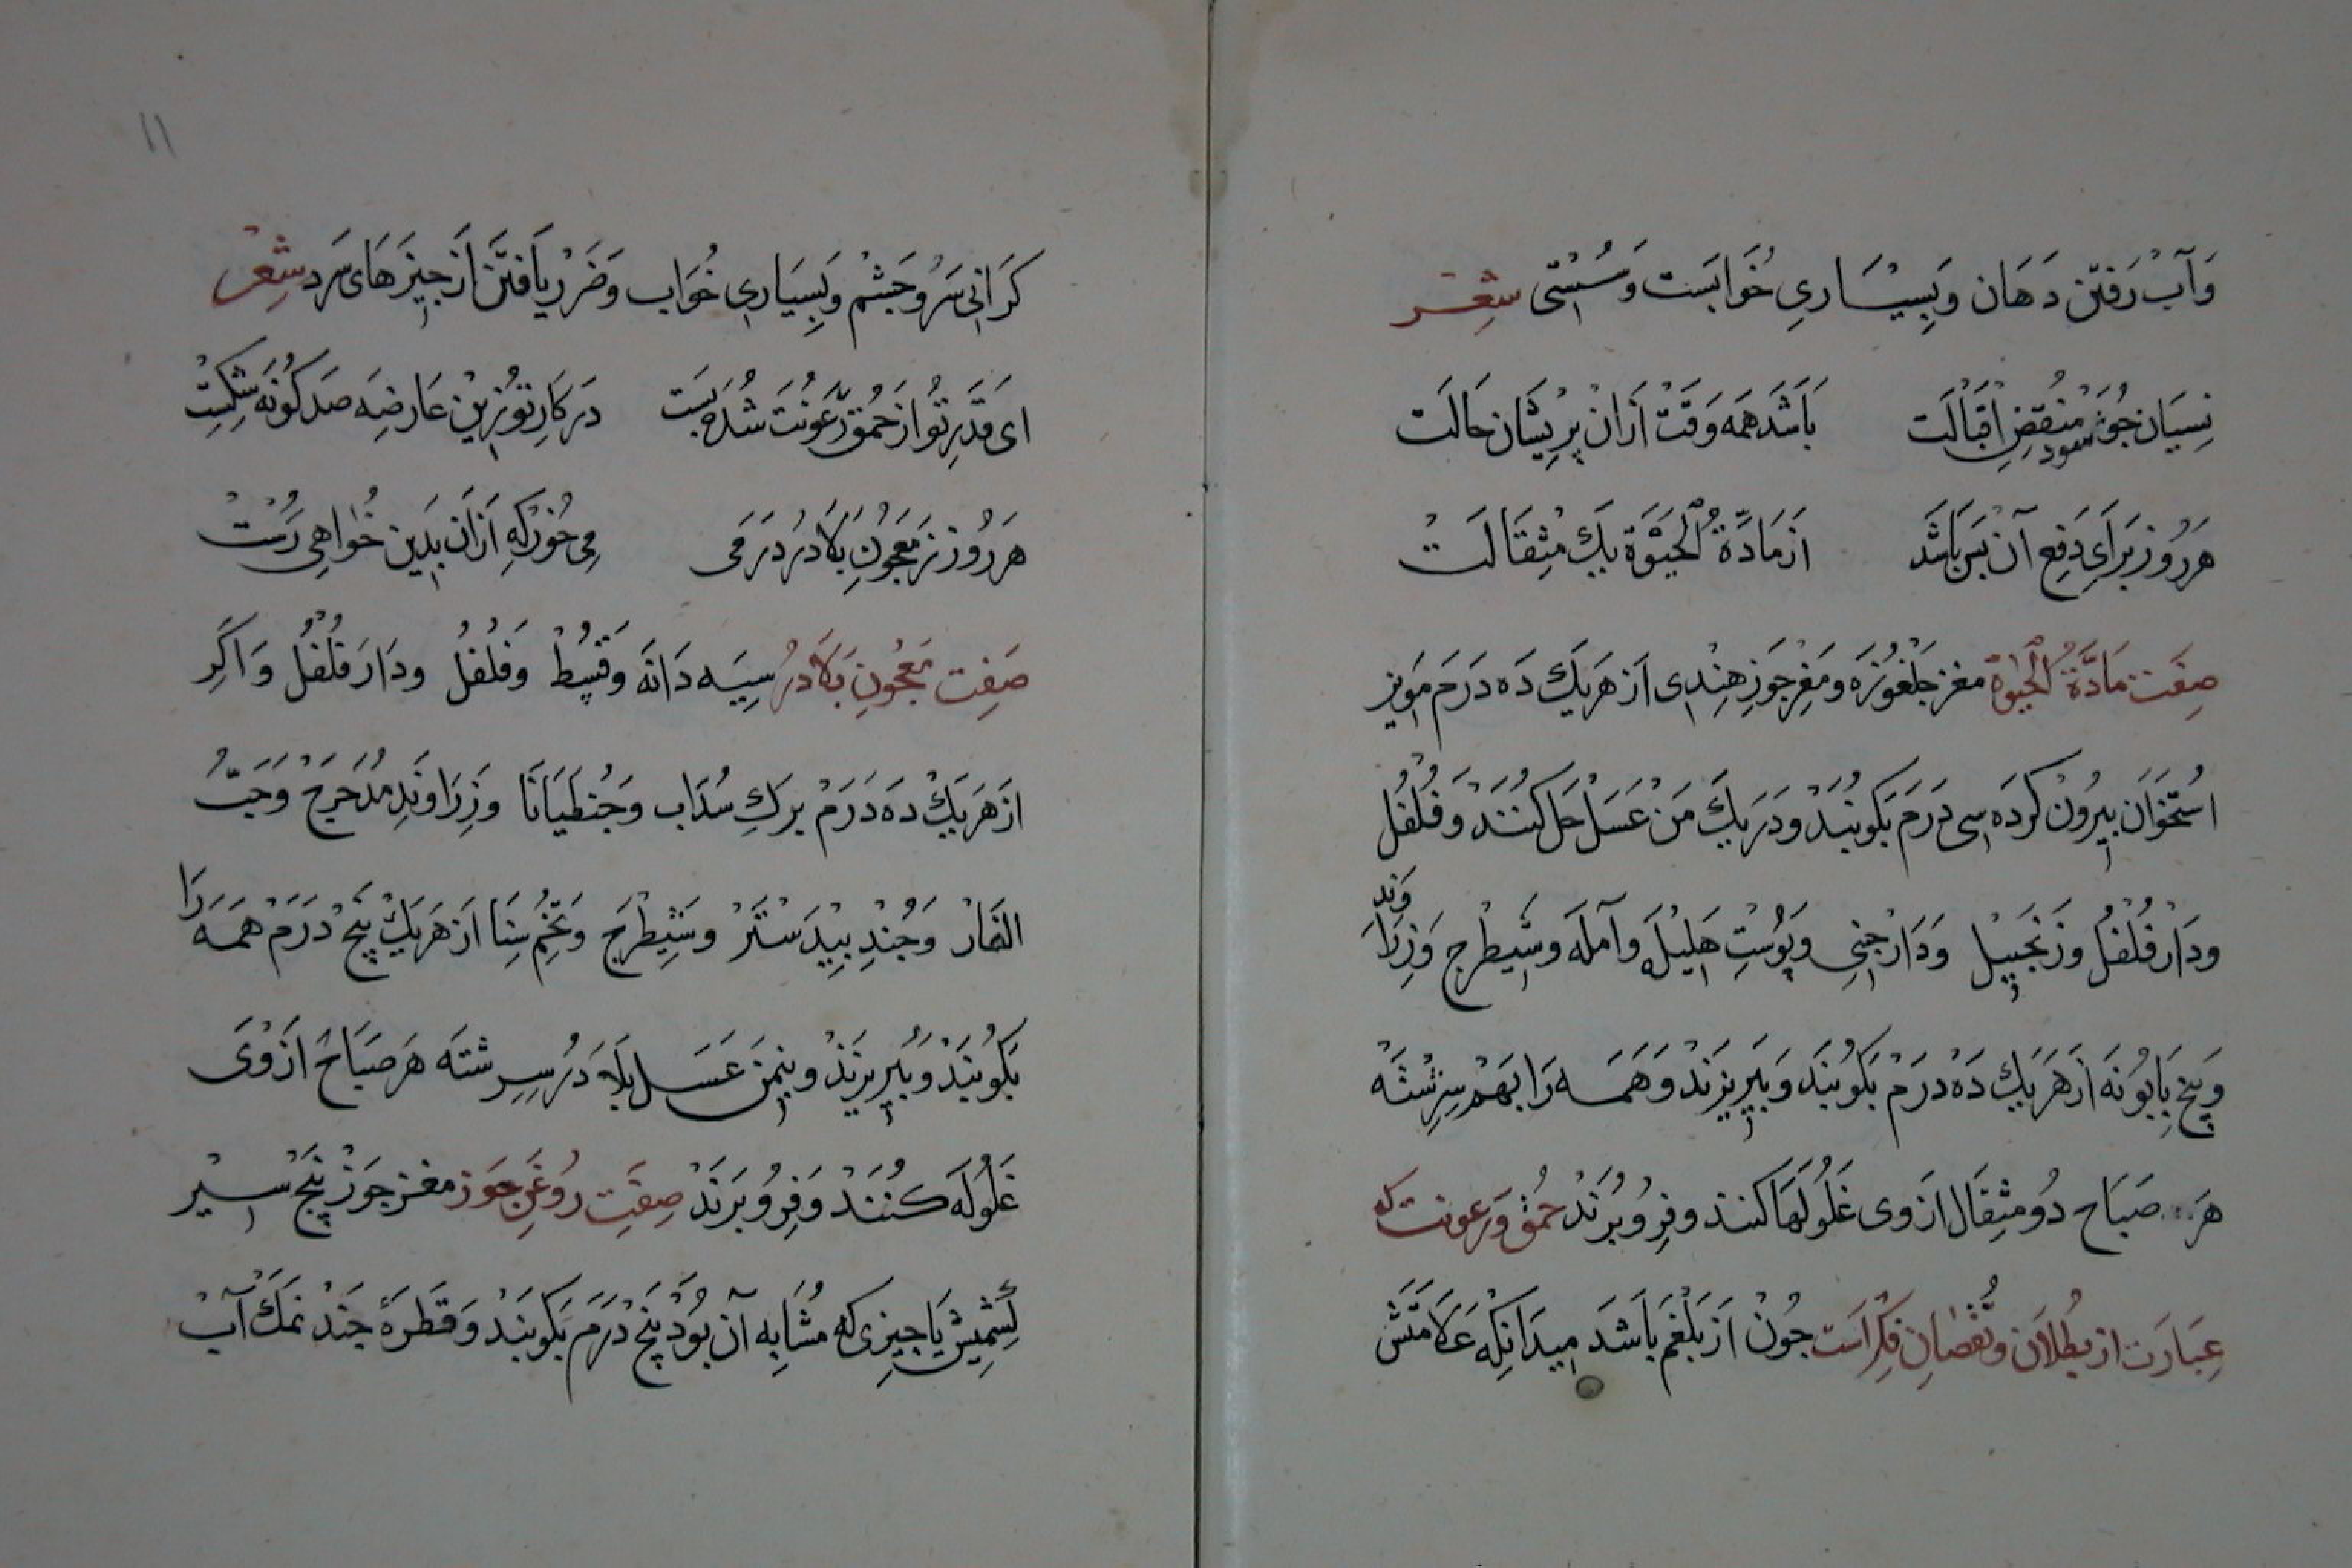 وَآب رَفتَن دَهَان وَبِسيَاريِ خُوَابَست وَسُستی شِعر
نِسیَان جُو شود مُنقِصِ اِقبَالَت بَاشَد هَمَه وَقت اَزان پَرِیشَان حَالَت
هَر رُوز بَرَایِ دَفعِ آن بَس بَاشَد اَز مَادَّةُ الحَیوٰة یِك مِثقَالَت
صِفَت مَادَّةُ الحَیوٰة مغز جَلغُوزَه و مَغزِ جَوزِ هِندِی اَز هَر یَك دَه دَرَم مَویز
استُخوَان بیرُون کَردَه سِی دَرَم بَکوبَند وَدَر یَك مَن عَسَل حَل کنَند وَفُلفُل
ودَار فُلفُل وزَنجَبِیل وَدَارجِنِی وپُوستِ هَلِیلَه وآمله وشَیطرج وَزِرَاوَند
وبیخِ بَابُونَه اَز هَر یَك دَه دَرَم بَکوبَند وَبَبِیزَند وَهَمَه رَا بَهَم سِرِشتَه
هَر صَبَاح دُو مثِقَال اَز وی غَلُولهَا کنند وفِرُو بَرَند حُمق وَرعونت که
عِبَارَت از بُطلَان ونُقصَانِ فِکر است جُون اَز بَلغَم بَاشَد مِیدَانکِه عَلَامَتَش
۱۱
کَرَانی سَر وجَشم وبِسیَاری خُوَاب وَضَرَر یَافتَن اَز جیزهَای سَرد شِعر
ای قَدرِ تُو از حُمق ورَعُونَت شُدَه بَست دَر کَارِ تُو زِین عَارِضَه صَد کُونَه شِکَست
هَر رُوز ز مَعجُونِ بَلَادُر دَرَمی مِی خُور کِه اَزان بَدِین خُواهِی رَست
صَفِت مَعجُونِ بَلَادُر سِیَه دَانَه وَقُسط وَفُلفُل ودَار فُلفُل وَاکَر
از هَر یَك دَه دَرَم برَكِ سُدَاب وَجُنطیَانَا وَزِرَاوَندِ مُدَحرَج وَحَبُّ
الغَار وَجُندِ بِیدَستَر وشَیطرَج وَتُخمِ سِنَا اَز هَر یَك پَنج دَرَم هَمَه رَا
بَکوبَند وَبَبِیزَند وبنیمَن عَسَل بَلَادُر سِرِشتَه هَر صَبَاح اَز وَی
غَلُولَه کنُنَد وَفِرُو بَرَند صِفَتِ رُوغَنِ جَوز مغز جَوز پَنج سیر
کِشمِش یَا جیزی که مُشَابِه آن بُوَد پَنج دَرَم بَکوبَند وَقَطرَهٔ جَند نمَك آب